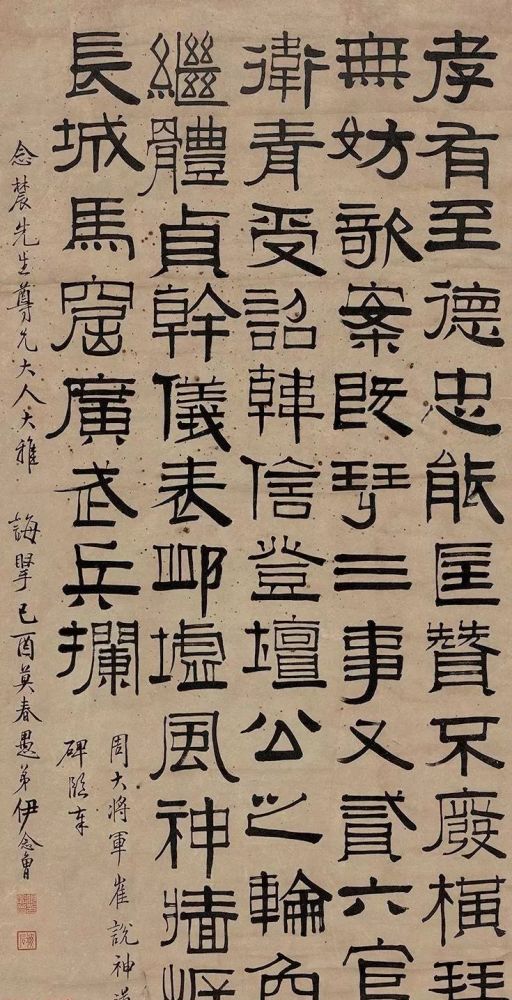 孝有至德忠能匡贊不廢橫琴
無妨歌案既三事又貳六官
衛青受詔韓信登壇公之輪奐
繼體貞幹儀表邱墟風神牆岸
長城馬窟廣武兵欄
周大將軍崔說神道
碑奉
念農先生尊兄大人大雅 誨己酉莫春愚弟伊念曾